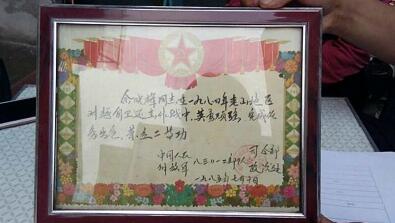 同志在一九八四年老山地区
对越自卫还击作战中，英勇顽强，完成任
务出色，荣立二等功
中国人民 司令部
解放军 部队 政治处
一九八五年七月十日